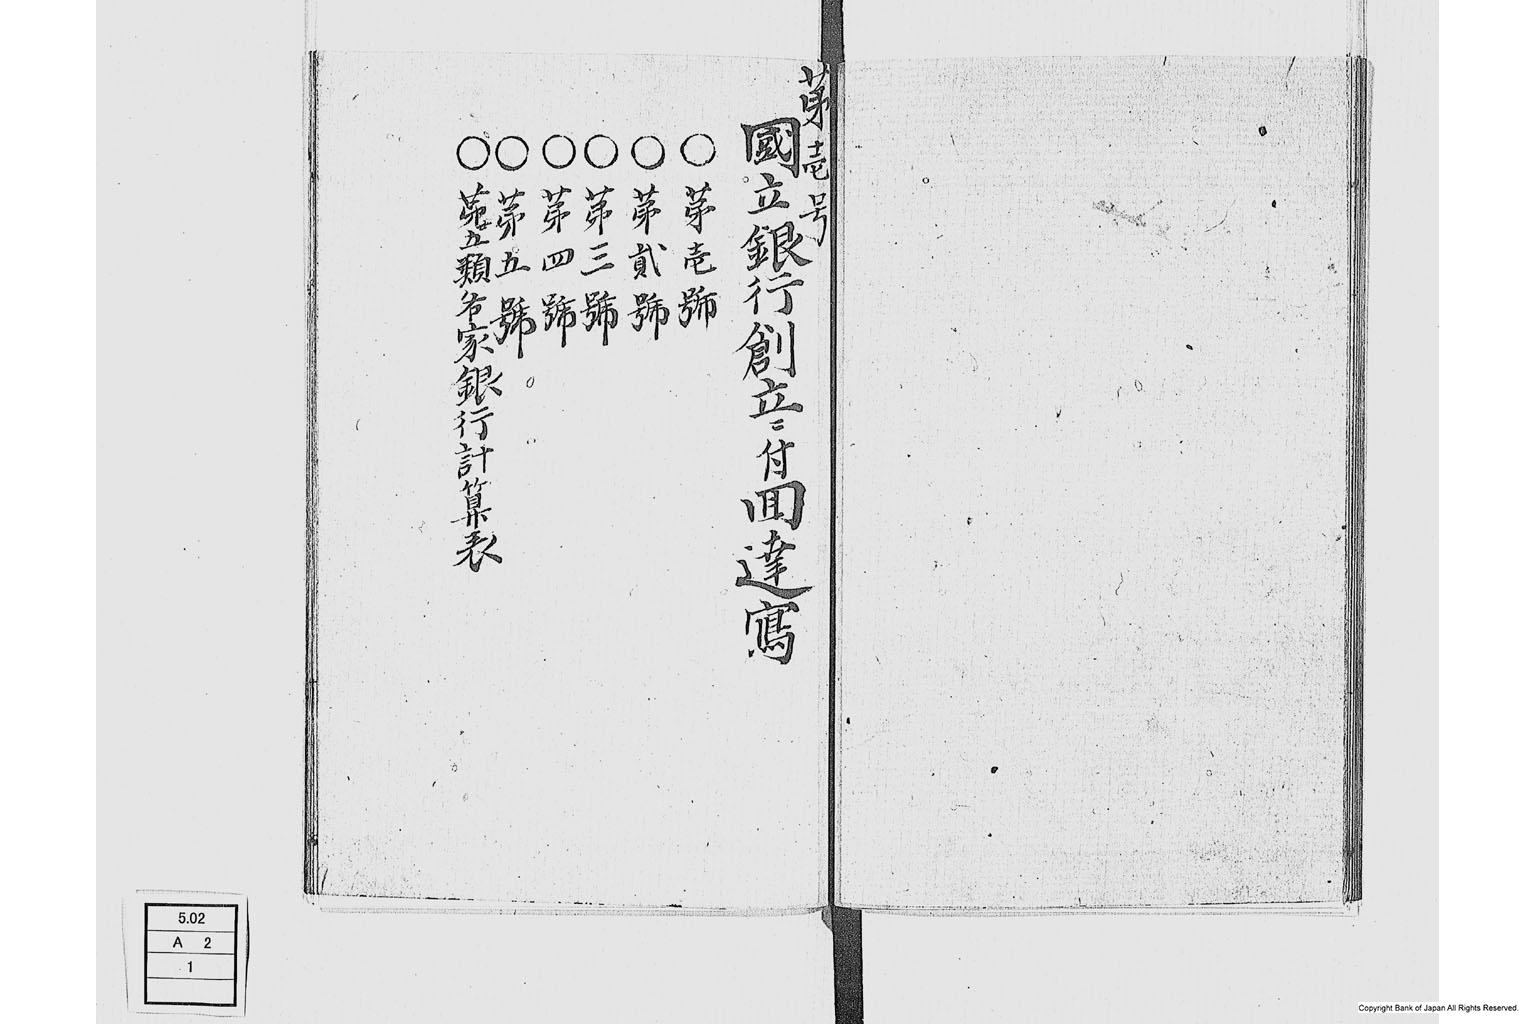 第壱号
國立銀行創立ニ付回達寫
○ 第壱號
○ 第貳號
○ 第三號
○ 第四號
○ 第五號
○ 第五類各家銀行計算表
5.02
A 2
1
Copyright Bank of Japan All Rights Reserved.